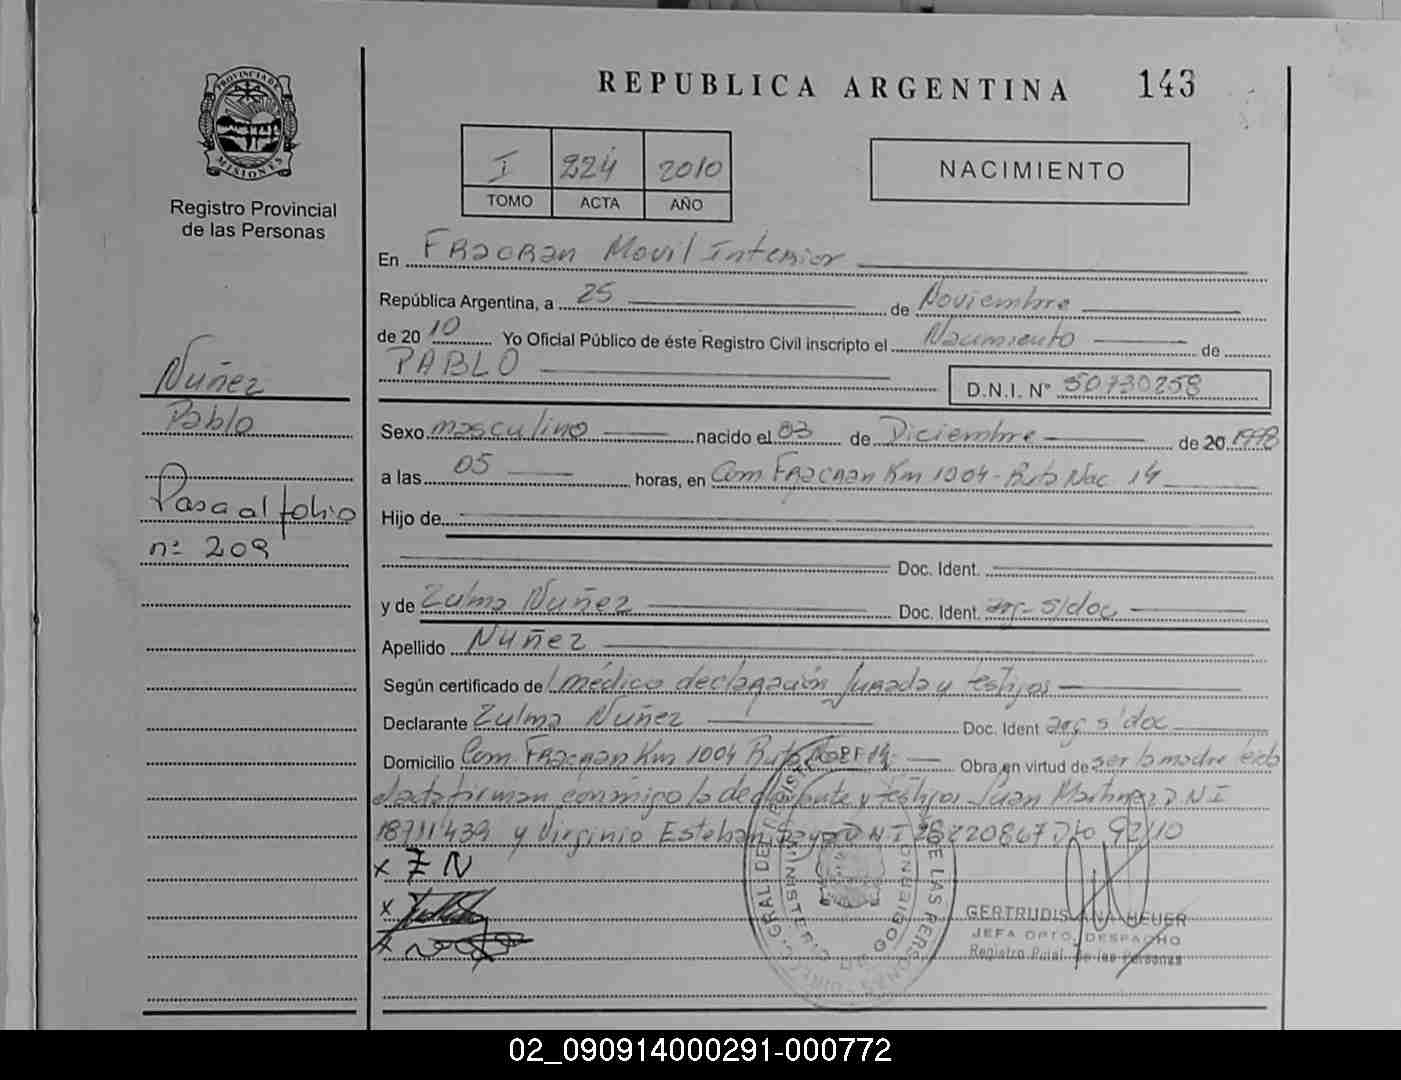 PROVINCIA DE
MISIONES
Registro Provincial
de las Personas
Nuñez
Pablo
Pasa al folio
n° 209
REPUBLICA ARGENTINA 143
I 224 2010
TOMO ACTA AÑO
NACIMIENTO
En Fracran Movil Interior
República Argentina, a 25 de Noviembre
de 2010 Yo Oficial Público de éste Registro Civil inscripto el Nacimiento de
PABLO D.N.I. N° 50730258
Sexo masculino nacido el 03 de Diciembre de 20 1998
a las 05 horas, en Com. Fracran Km 1004 - Ruta Nac 14
Hijo de
Doc. Ident.
y de Zulma Nuñez Doc. Ident. arg - s/doc
Apellido Nuñez
Según certificado del médico declaración Jurada y testigos
Declarante Zulma Nuñez Doc. Ident arg s/doc
Domicilio Com. Fracran Km 1004 Ruta 14 Obra en virtud de ser la madre leida
el acta firman conmigo la declarante y testigos Juan Martinez D N I
18711439 y Virginio Esteban D N I 28220867 Dto 92/10
x Z N
x
x
DIREC. GRAL DEL REGISTRO DE LAS PERSONAS
MINISTERIO DE GOBIERNO
GERTRUDIS ANA HEUER
JEFA DPTO. DESPACHO
Registro Pcial. de las Personas
02_090914000291-000772